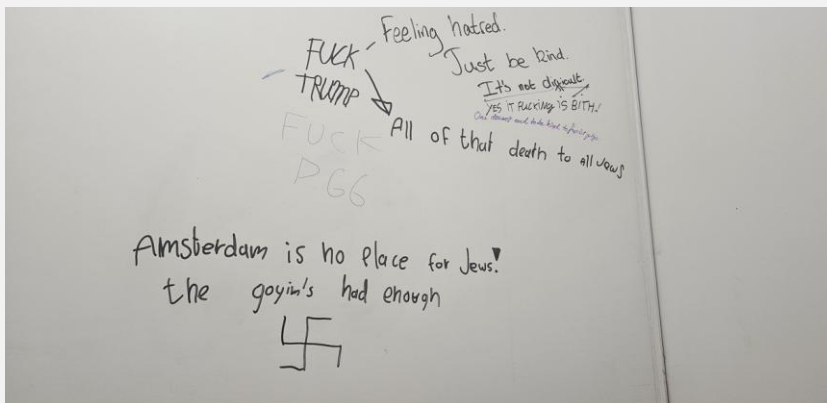 FUCK
TRUMP
Feeling hatred.
Just be kind.
It's not difficult.
YES IT FUCKING IS BITH!
All of that death to all Jews
FUCK
PGG
Amsterdam is no place for Jews!
the goyim's had enough